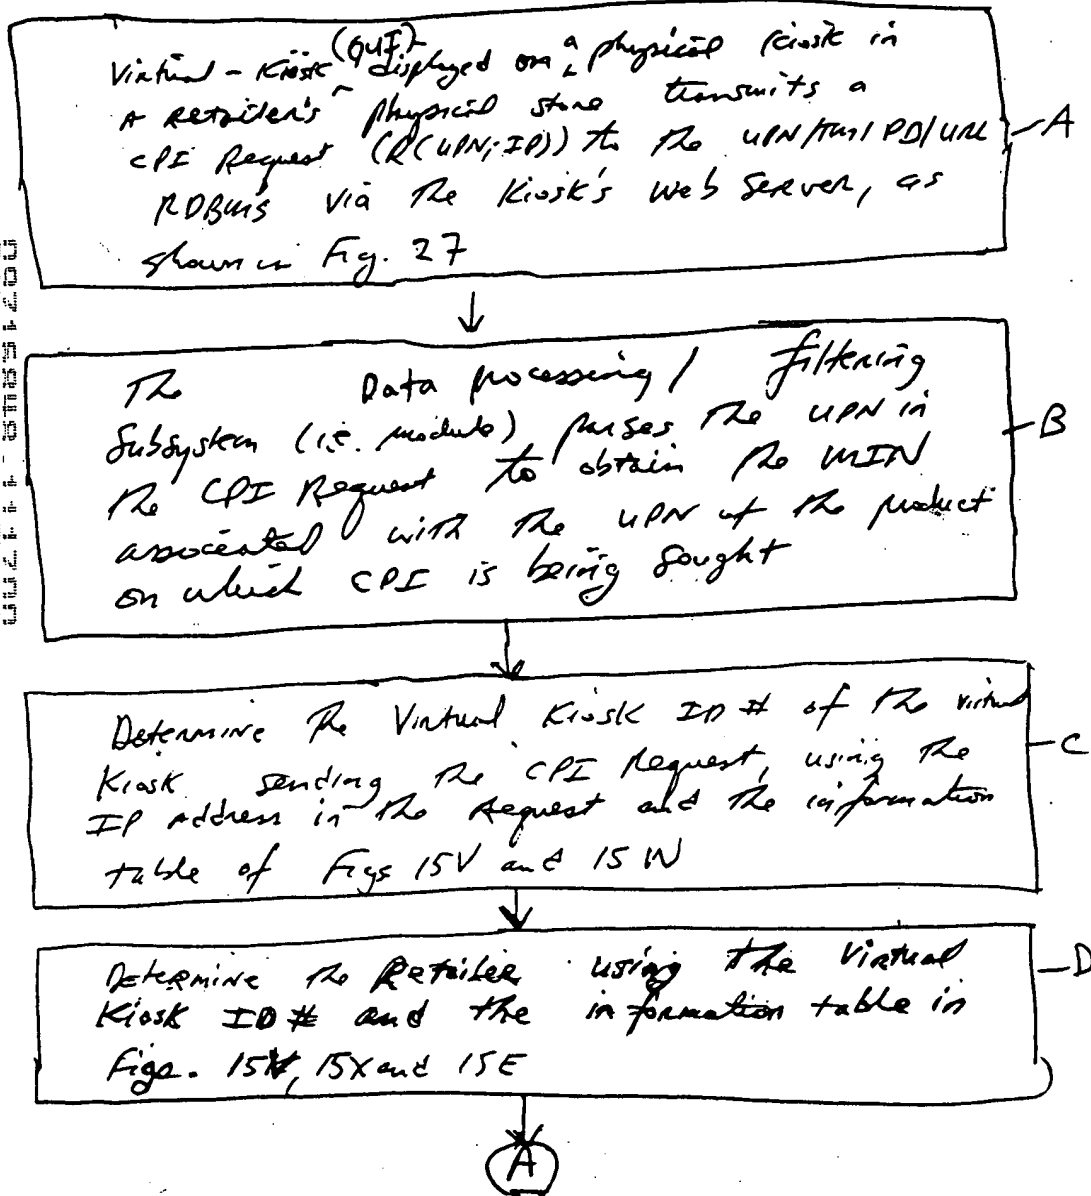 Virtual-Kiosk (GUI) displayed on a physical kiosk in
A Retailer's physical store transmits a
CPI Request (R(UPN; IP)) to the UPN/TM/PD/URL
RDBMS via the Kiosk's Web Server, as
shown in Fig. 27
A
The Data processing / filtering
Subsystem (i.e. module) parses the UPN in
the CPI Request to obtain the MIN
associated with the UPN of the product
on which CPI is being sought
B
Determine the Virtual Kiosk ID # of the virtual
Kiosk sending the CPI Request, using the
IP Address in the Request and the information
table of Figs 15V and 15W
C
Determine the Retailer using the Virtual
Kiosk ID # and the information table in
Figs. 15W, 15X and 15E
D
A